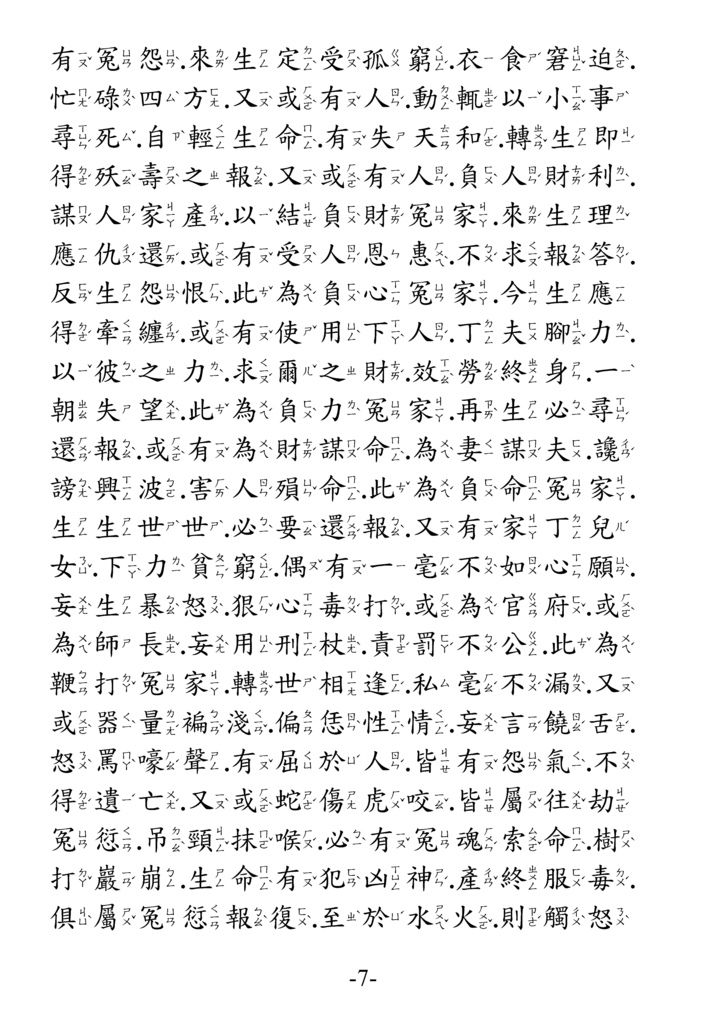 有冤怨.來生定受孤窮.衣食窘迫.
忙碌四方.又或有人.動輒以小事
尋死.自輕生命.有失天和.轉生即
得殀壽之報.又或有人.負人財利.
謀人家產.以結負財冤家.來生理
應仇還.或有受人恩惠.不求報答.
反生怨恨.此為負心冤家.今生應
得牽纏.或有使用下人.丁夫腳力.
以彼之力.求爾之財.效勞終身.一
朝失望.此為負力冤家.再生必尋
還報.或有為財謀命.為妻謀夫.讒
謗興波.害人殞命.此為負命冤家.
生生世世.必要還報.又有家丁兒
女.下力貧窮.偶有一毫不如心願.
妄生暴怒.狠心毒打.或為官府.或
為師長.妄用刑杖.責罰不公.此為
鞭打冤家.轉世相逢.私毫不漏.又
或器量褊淺.偏恁性情.妄言饒舌.
怒罵嚎聲.有屈於人.皆有怨氣.不
得遺亡.又或蛇傷虎咬.皆屬往劫
冤愆.吊頸抹喉.必有冤魂索命.樹
打巖崩.生命有犯凶神.產終服毒.
俱屬冤愆報復.至於水火.則觸怒
-7-